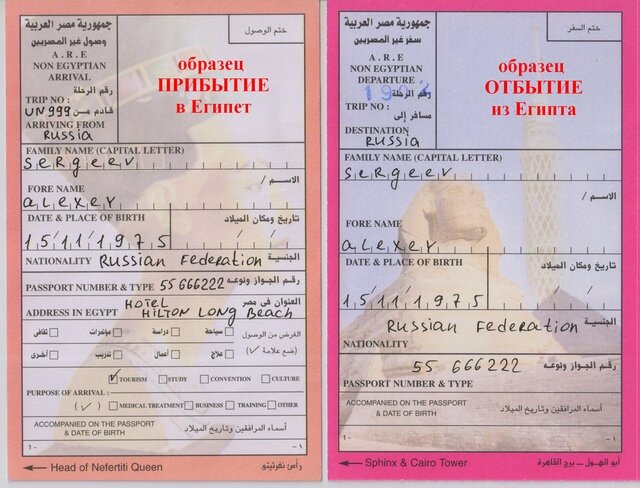 جمهورية مصر العربية
وصول غير المصريين
A . R . E
NON EGYPTIAN
ARRIVAL
رقم الرحلة
TRIP NO :
UN999 قادم من
ARRIVING FROM
RUSSIA
ختم الوصول
образец
ПРИБЫТИЕ
в Египет
FAMILY NAME (CAPITAL LETTER)
Sergeev
الاســم /
FORE NAME
alexey
DATE & PLACE OF BIRTH تاريخ ومكان الميلاد
15111975
NATIONALITY Russian Federation الجنسية
PASSPORT NUMBER & TYPE 55666222 رقم الجواز ونوعه
HOTEL العنوان فى مصر
ADDRESS IN EGYPT HILTON LONG Beach
الغرض من الوصول سياحة دراسة مؤتمرات ثقافى
(ضع علامة √) علاج أعمال تدريب أخرى
√ TOURISM STUDY CONVENTION CULTURE
PURPOSE OF ARRIVAL :
(√) MEDICAL TREATMENT BUSINESS TRAINING OTHER
ACCOMPANIED ON THE PASSPORT
& DATE OF BIRTH أسماء المرافقين وتاريخ الميلاد
- 1 - ١ -
Head of Nefertiti Queen رأس نفرتيتى
جمهورية مصر العربية
سفر غير المصريين
A . R . E
NON EGYPTIAN
DEPARTURE
رقم الرحلة
TRIP NO :
مسافر إلى
DESTINATION
RUSSIA
ختم السفر
образец
ОТБЫТИЕ
из Египта
FAMILY NAME (CAPITAL LETTER)
Sergeev
الاســم /
FORE NAME
alexey
DATE & PLACE OF BIRTH تاريخ ومكان الميلاد
15111975
Russian Federation الجنسية
NATIONALITY
55 666222 رقم الجواز ونوعه
PASSPORT NUMBER & TYPE
ACCOMPANIED ON THE PASSPORT
& DATE OF BIRTH أسماء المرافقين وتاريخ الميلاد
- 1 - ١ -
Sphinx & Cairo Tower أبو الهول – برج القاهرة